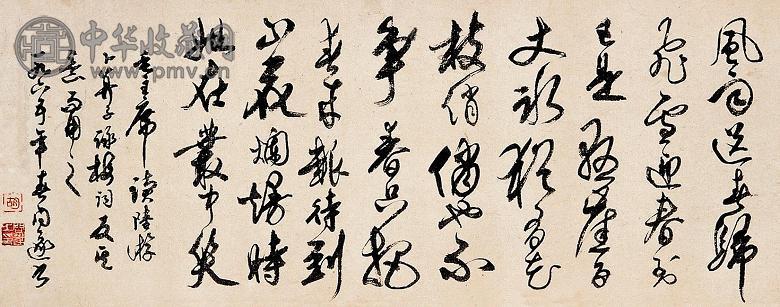 風雨送春歸
飛雪迎春到
已是懸崖百
丈冰猶有花
枝俏俏也不
爭春只把
春來報待到
山花爛熳時
她在叢中笑
毛主席讀陸游
卜算子詠梅詞反其
意而用之
年春問遂書
胡
中华收藏网
www.pmv.cn